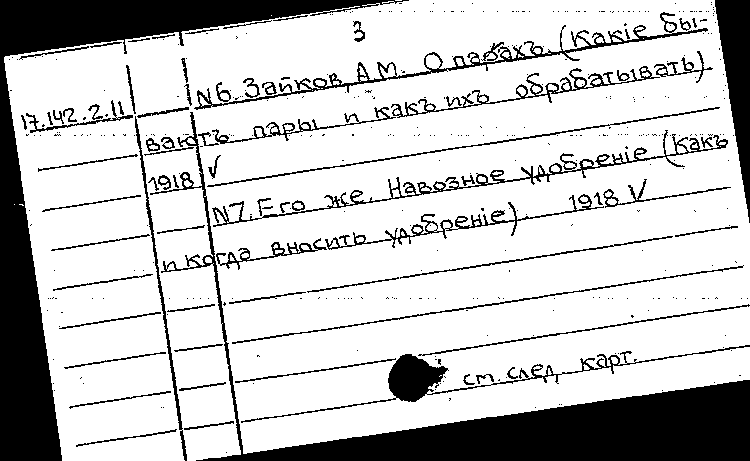 3
17.142.2.11 N6. Зайков, А.М. О парахъ. (Какiе бы-
ваютъ пары и какъ ихъ обрабатывать).
1918 ✓
N7. Его же. Навозное удобренiе (какъ
и когда вносить удобренiе). 1918 ✓
см. след. карт.